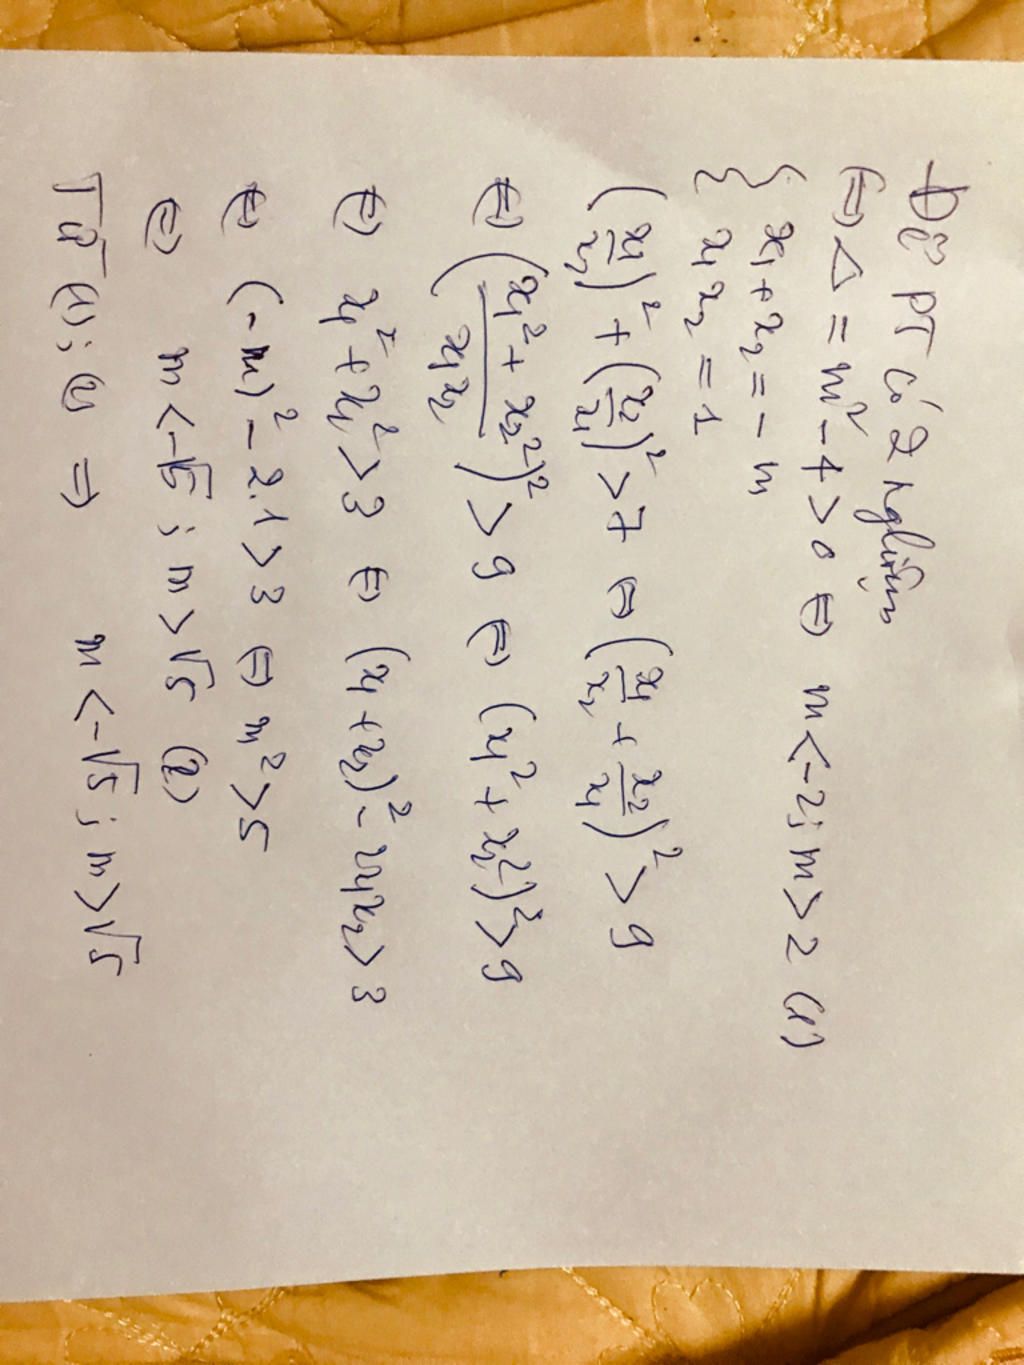 Để PT có 2 nghiệm
⇔ Δ = m² - 4 > 0 ⇔ m < -2; m > 2 (1)
{ x₁ + x₂ = - m
{ x₁x₂ = 1
(x₁/x₂)² + (x₂/x₁)² > 7 ⇔ (x₁/x₂ + x₂/x₁)² > 9
⇔ ((x₁² + x₂²)/(x₁x₂))² > 9 ⇔ (x₁² + x₂²)² > 9
⇔ x₁² + x₂² > 3 ⇔ (x₁ + x₂)² - 2x₁x₂ > 3
⇔ (-m)² - 2.1 > 3 ⇔ m² > 5
⇔ m < -√5 ; m > √5 (2)
Từ (1); (2) ⇒ m < -√5 ; m > √5